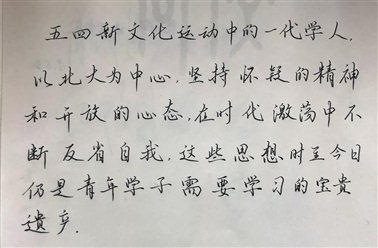 五四新文化运动中的一代学人,
以北大为中心,坚持怀疑的精神
和开放的心态,在时代激荡中不
断反省自我,这些思想时至今日
仍是青年学子需要学习的宝贵
遗产.